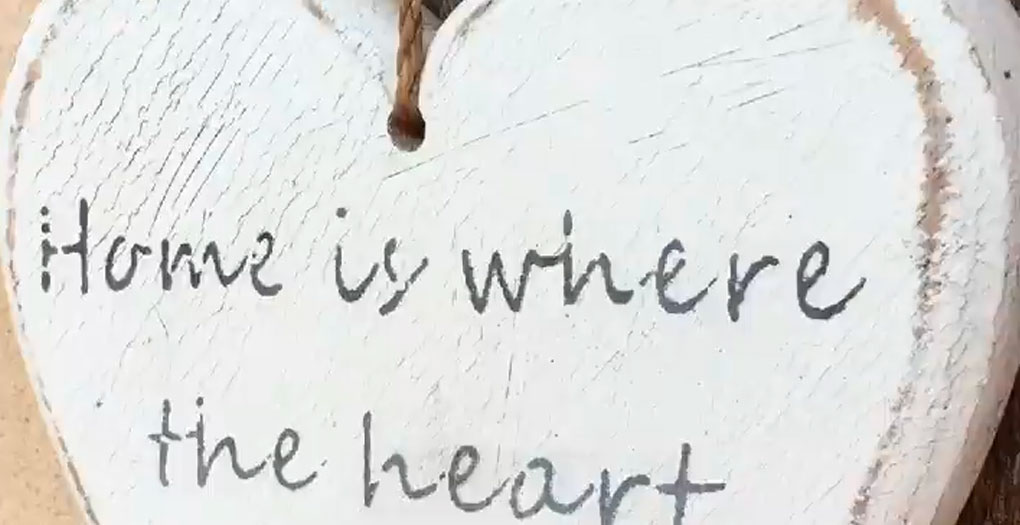 Home is where
the heart